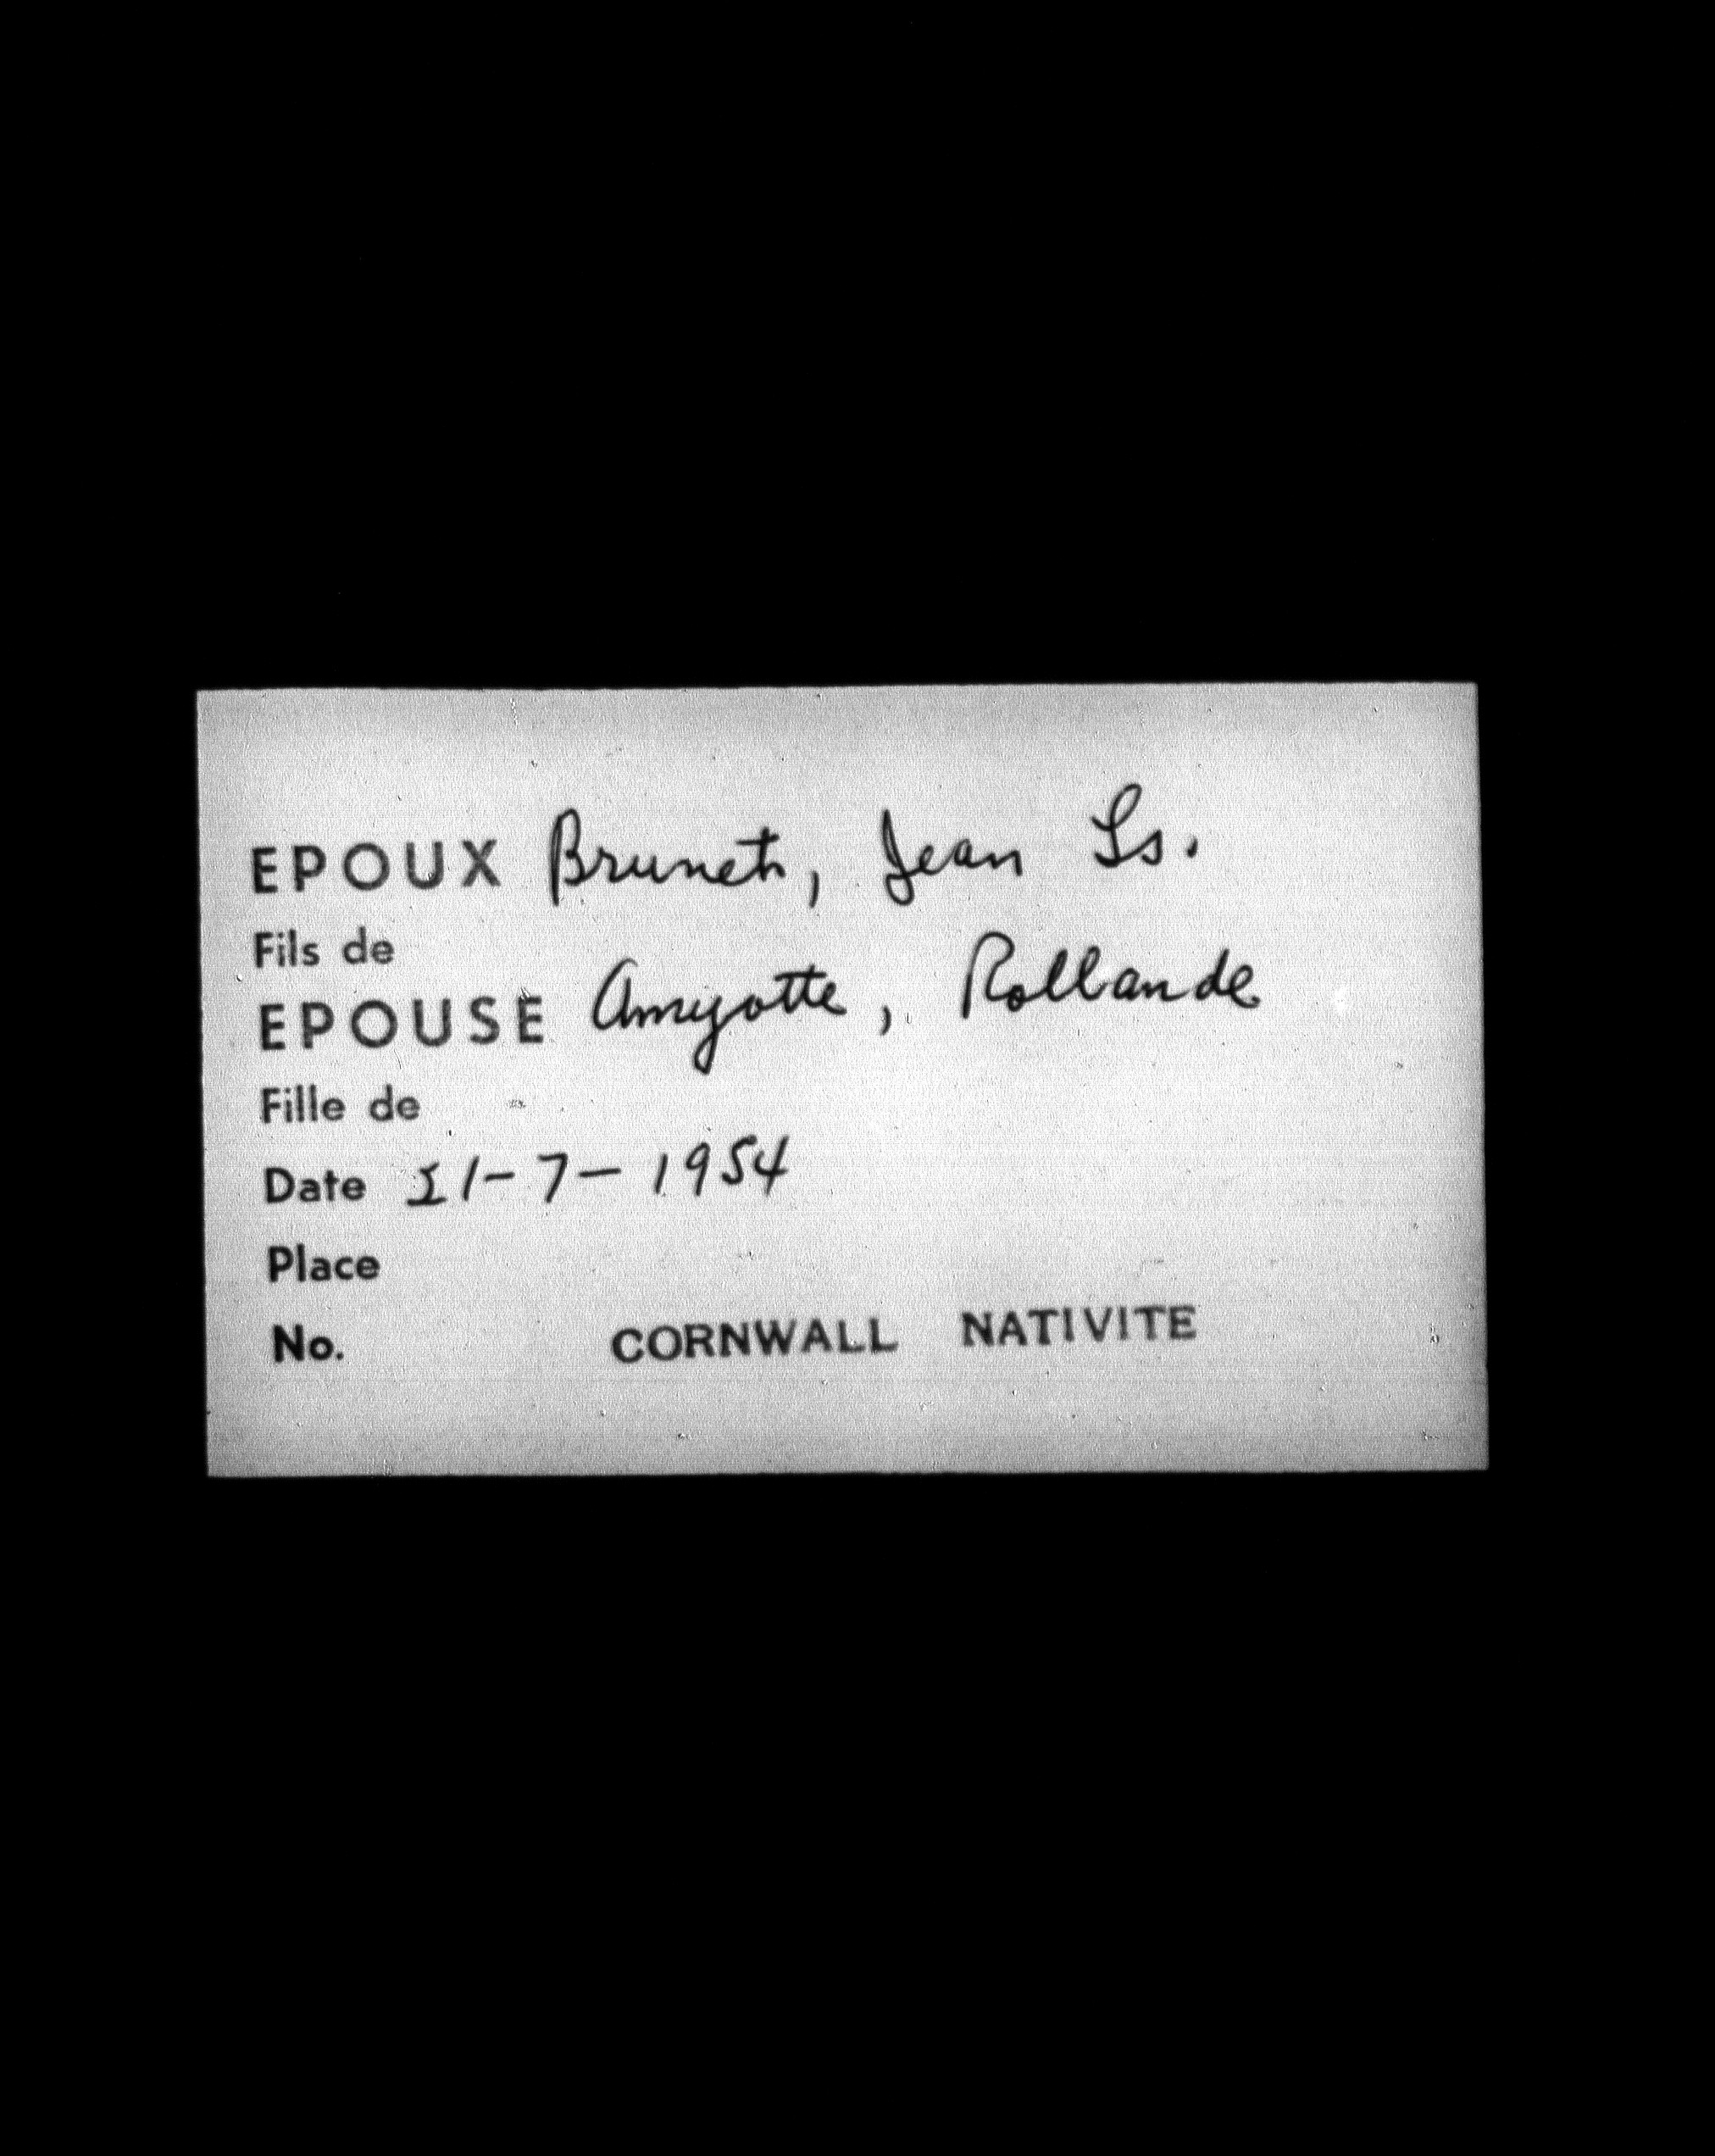 EPOUX Brunet, Jean Ls.
Fils de
EPOUSE Amyotte, Rollande
Fille de
Date 21-7-1954
Place
No. CORNWALL NATIVITE